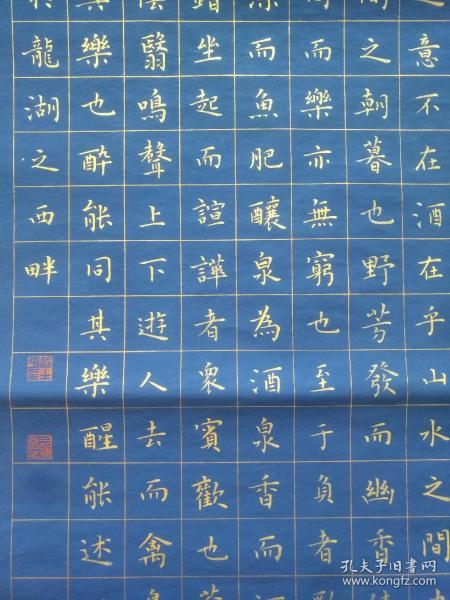 意不在酒在乎山水之間
之朝暮也野芳發而幽香
而樂亦無窮也至于負者
而魚肥釀泉為酒泉香而
坐起而諠譁者衆賓歡也
翳鳴聲上下遊人去而禽
樂也醉能同其樂醒能述
龍湖之西畔
孔夫子旧书网